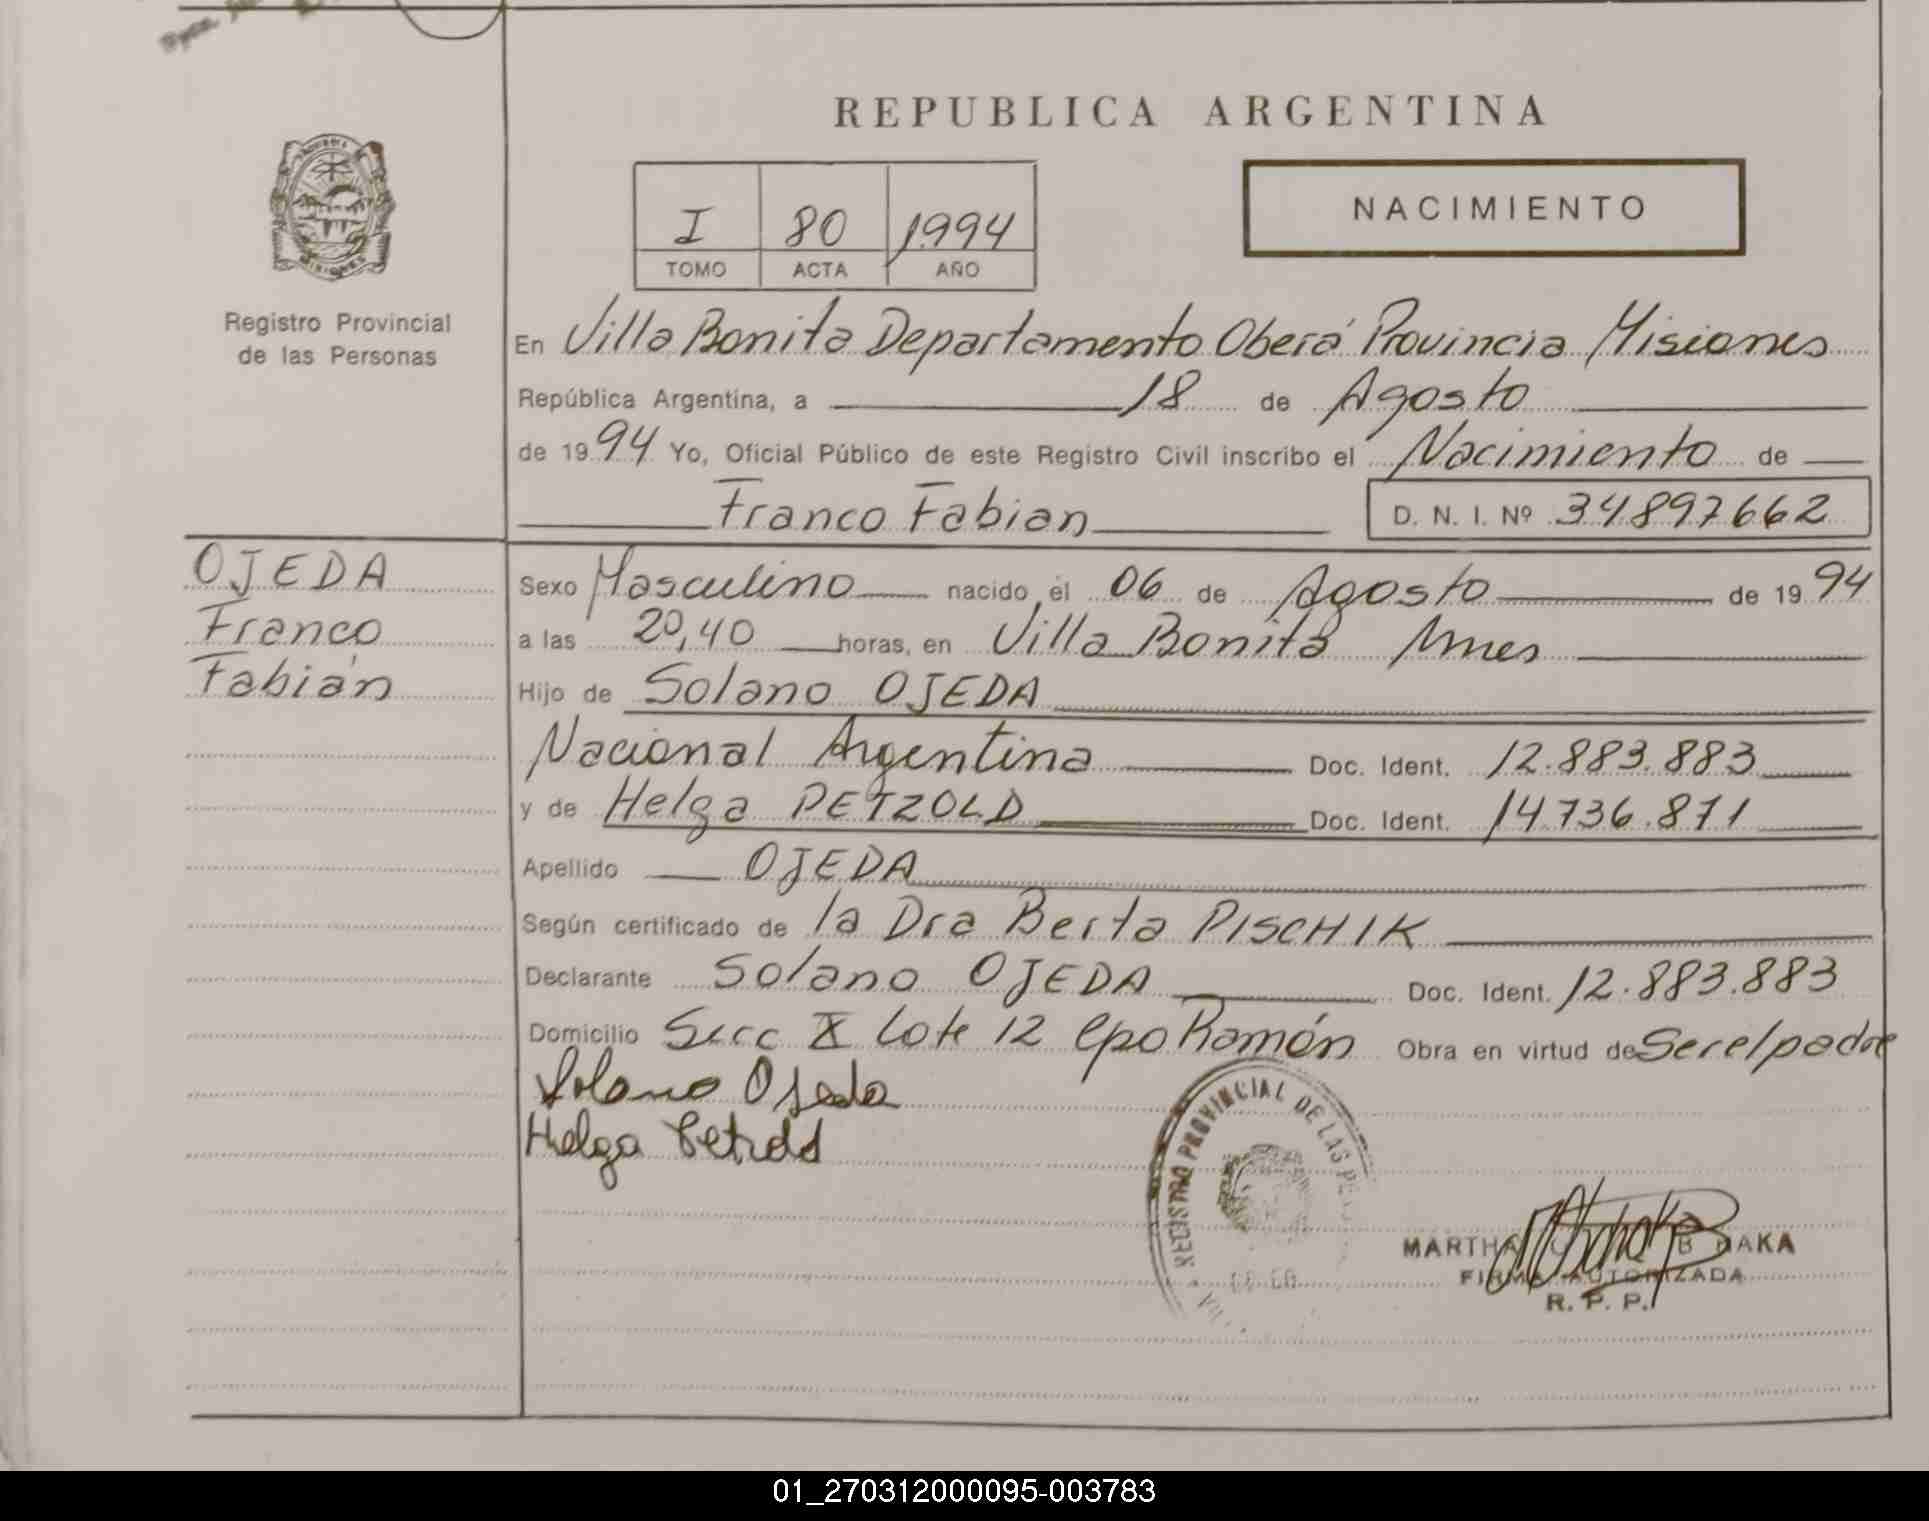 REPUBLICA ARGENTINA
NACIMIENTO
I 80 1994
TOMO ACTA AÑO
MISIONES
Registro Provincial
de las Personas
En Villa Bonita Departamento Oberá Provincia Misiones
República Argentina, a 18 de Agosto
de 1994 Yo, Oficial Público de este Registro Civil inscribo el Nacimiento de
Franco Fabian D. N. I. Nº 34897662
OJEDA
Franco
Fabián
Sexo Masculino nacido el 06 de Agosto de 1994
a las 20,40 horas, en Villa Bonita Mnes
Hijo de Solano OJEDA
Nacional Argentina Doc. Ident. 12.883.883
y de Helga PETZOLD Doc. Ident. 14736.871
Apellido OJEDA
Según certificado de la Dra Berta PISCHIK
Declarante Solano OJEDA Doc. Ident. 12.883.883
Domicilio Secc X Lote 12 Cpo Ramón Obra en virtud de Ser el padre
Solano Ojeda
Helga Petzold
REGISTRO PROVINCIAL DE LAS
MARTHA
FIRMA AUTORIZADA
R. P. P.
01_270312000095-003783